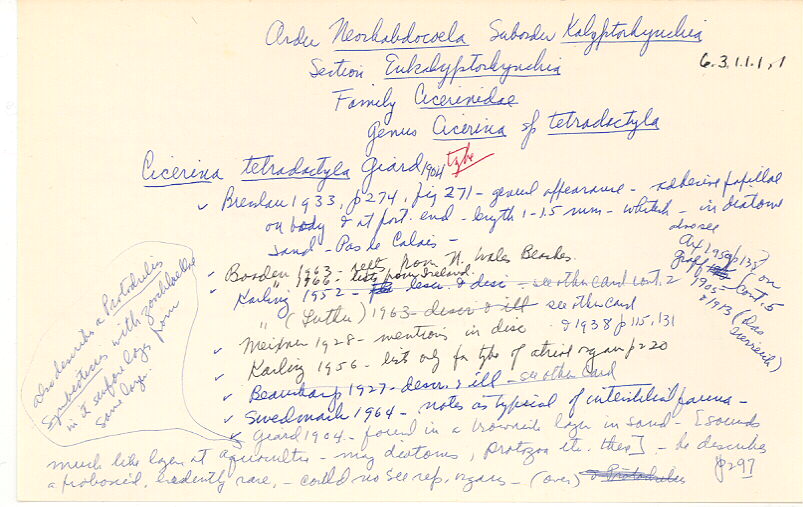 Order Neorhabdocoela Suborder Kalyptorhynchia
6.3.1.1.1.1
Section Eukalyptorhynchia
Family Cicerinidae
Genus Cicerina sp tetradactyla
Cicerina tetradactyla Giard 1904 type
✓ Breslau 1933, p274, fig 271 - general appearance - adhesive papillae
on body & at post. end - length 1-1.5 mm - whitish - in diatom
sand - Pas de Calais -
also see
Ax 1959 p137
Graff on
1905 - cont. 5
& 1913 (Das
Tierreich)
✓ Boaden 1963 - rept from N. Wales Beaches.
" 1966 - lists from Ireland.
✓ Karling 1952 - descr. & disc - see other card cont. 2
" (Luther) 1963 - descr & ill see other card
✓ Meixner 1928 - mentions in disc & 1938 p 115, 131
Karling 1956 - list only for type of atrial organ p220
✓ Beauchamp 1927 - descr. & ill - see other card
✓ Swedmark 1964 - notes as typical of interstitial fauna -
✓ Giard 1904 - found in a brownish layer in sand - [sounds
much like layer at - may diatoms, protozoa etc. there] - he describes
a proboscis, evidently rare, - could no see rep. organs - (over) & Protodrilus p297
also describes a Protodrilus
symbioticus with zoochlorellae
in surface layer from
same layer.